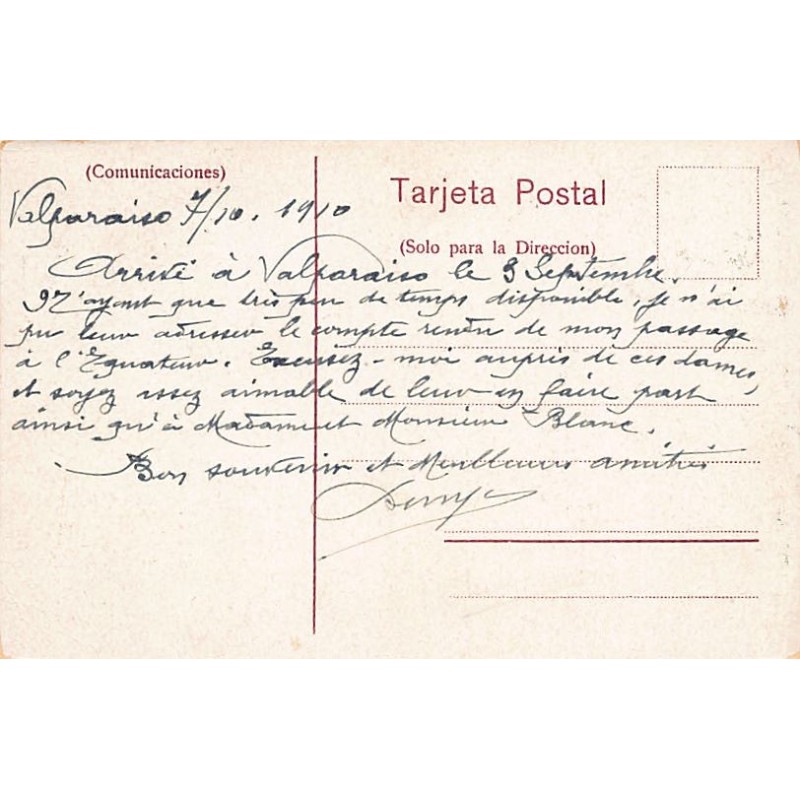 (Comunicaciones)
Tarjeta Postal
(Solo para la Direccion)
Valparaiso 7/10. 1910
Arrivé à Valparaiso le 3 Septembre.
N'ayant que très peu de temps disponible, je n'ai
pu leur adresser le compte rendu de mon passage
à l'Equateur. Excusez-moi auprès de ces dames,
et soyez assez aimable de leur en faire part
ainsi qu'à Madame et Monsieur Blanc.
Bon souvenir et Meilleures amitiés